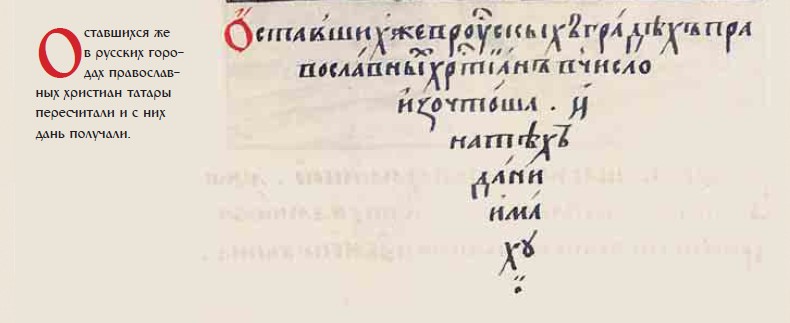 Оставшихся же
в русских горо-
дах православ-
ных христиан татары
пересчитали и с них
дань получали.
Ѻставшихжепрорꙋскыхъградѣхъпра
вославныххрⷭтїанъвчисло
изочтоша . и
натѣхъ
дани
има
хꙋ